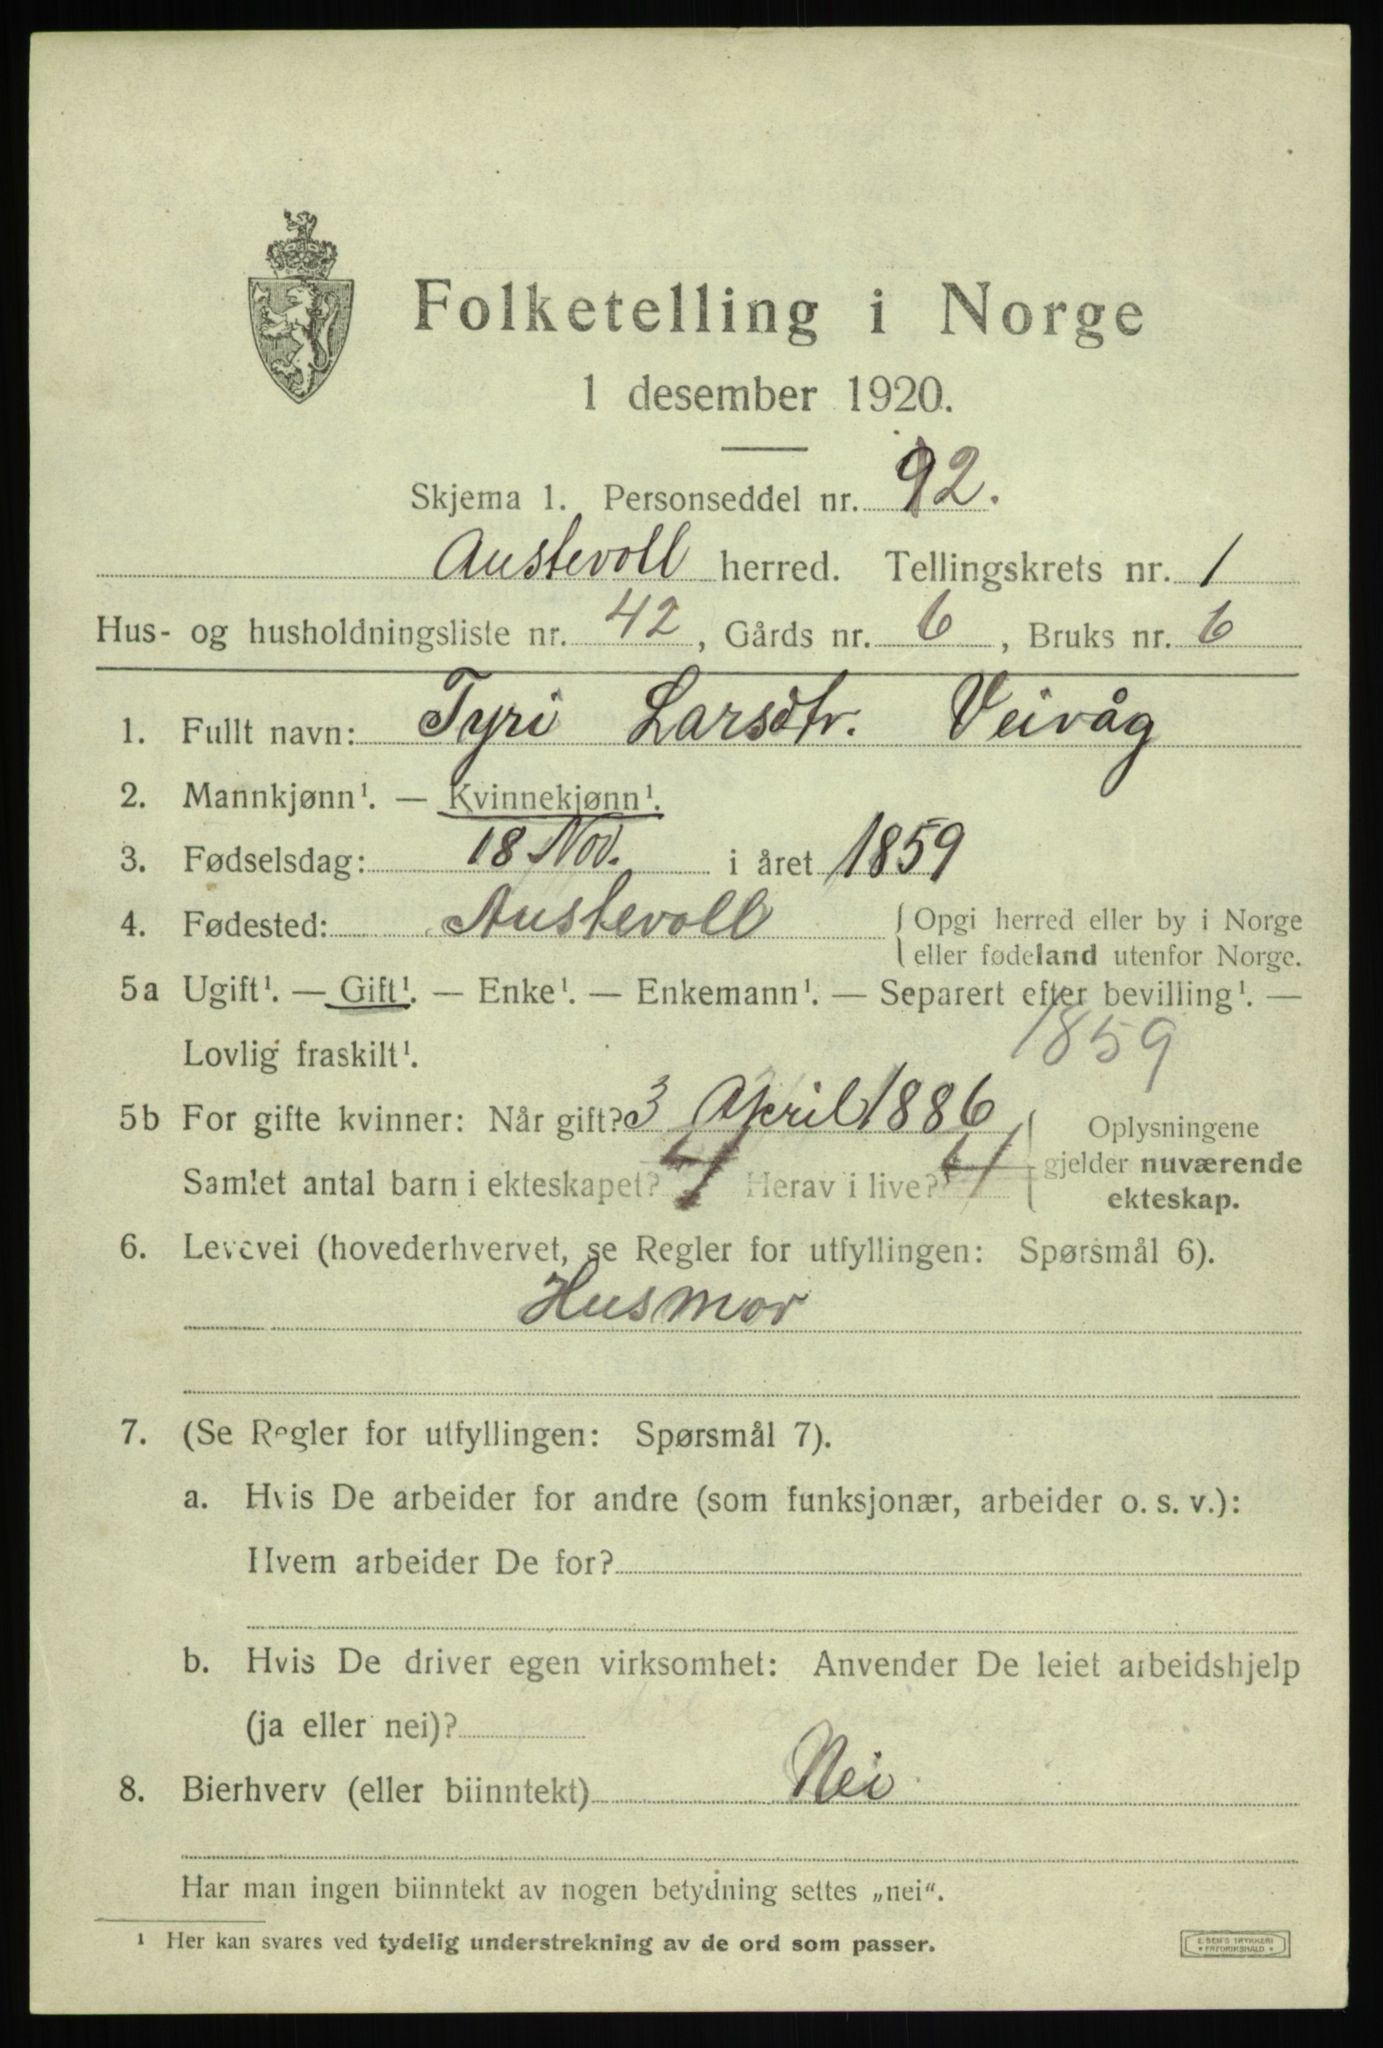 Folketelling i Norge
1 desember 1920.
Skjema 1. Personseddel nr. 92.
Austevoll herred. Tellingskrets nr. 1
Hus- og husholdningsliste nr. 42, Gårds nr. 6, Bruks nr. 6
1. Fullt navn: Tyri Larsdtr. Veivåg
2. Mannkjønn¹. — Kvinnekjønn¹.
3. Fødselsdag: 18 Nov. i året 1859
4. Fødested: Austevoll { Opgi herred eller by i Norge
eller fødeland utenfor Norge.
5a Ugift¹. — Gift¹. — Enke¹. — Enkemann¹. — Separert efter bevilling¹. —
Lovlig fraskilt¹. 1859
5b For gifte kvinner: Når gift? 3 April 1886
Samlet antal barn i ekteskapet? 4 Herav i live? 4
Oplysningene
gjelder nuværende
ekteskap.
6. Levevei (hovederhvervet, se Regler for utfyllingen: Spørsmål 6).
Husmor
7. (Se Regler for utfyllingen: Spørsmål 7).
a. Hvis De arbeider for andre (som funksjonær, arbeider o. s. v.):
Hvem arbeider De for?
b. Hvis De driver egen virksomhet: Anvender De leiet arbeidshjelp
(ja eller nei)?
8. Bierhverv (eller biinntekt) Nei
Har man ingen biinntekt av nogen betydning settes „nei“.
¹ Her kan svares ved tydelig understrekning av de ord som passer.
E. SEM'S TRYKKERI
FREDRIKSHALD